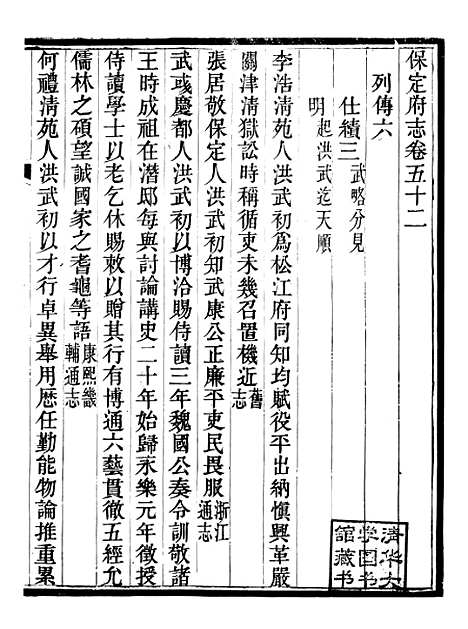 保定府志卷五十二
列傳六
仕績三 武略分見
明 起洪武迄天順
李浩清苑人洪武初爲松江府同知均賦役平出納愼興革嚴
關津清獄訟時稱循吏未幾召置機近 舊志
張居敬保定人洪武初知武康公正廉平吏民畏服 浙江通志
武彧慶都人洪武初以博洽賜侍讀三年魏國公奏令訓敬諸
王時成祖在潛邸每與討論講史二十年始歸永樂元年徵授
侍讀學士以老乞休賜敕以贈其行有博通六藝貫徹五經允
儒林之碩望誠國家之耆龜等語 康熙畿輔通志
何禮清苑人洪武初以才行卓異舉用歴任勤能物論推重累
清华大
学图书
馆藏书